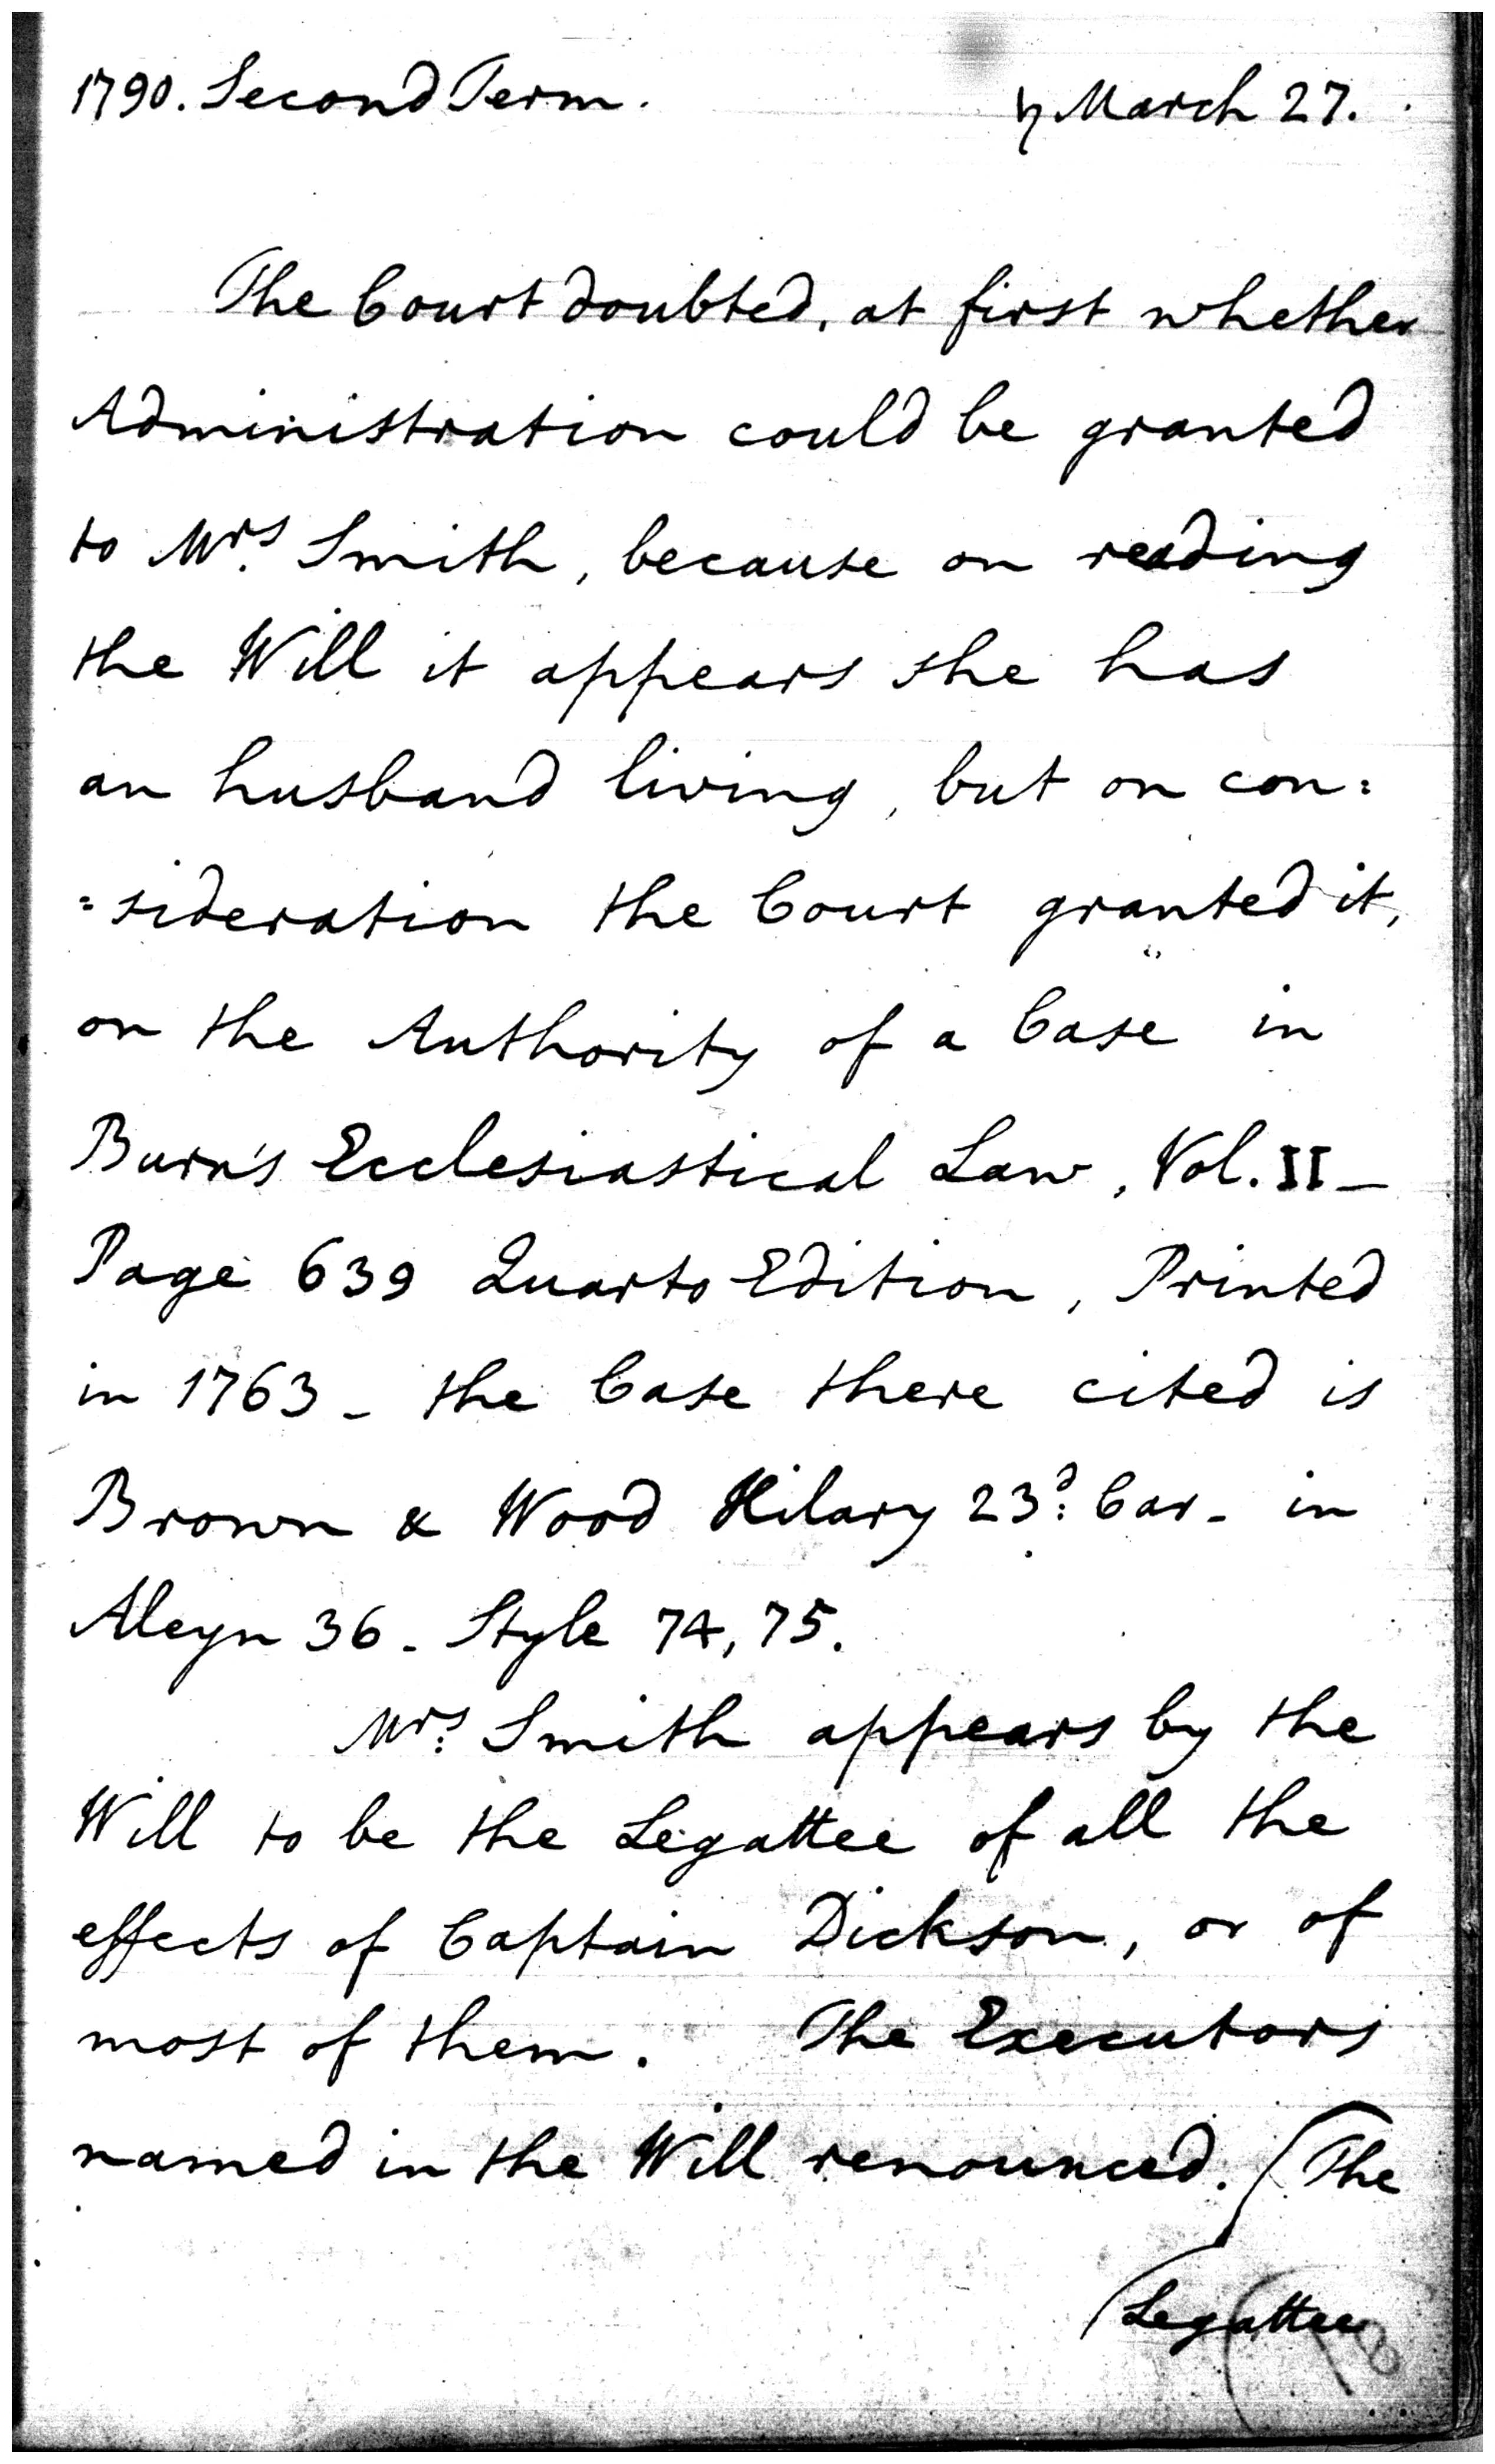 1790. Second Term. ♄ March 27.
The Court doubted, at first whether
Administration could be granted
to Mrs. Smith, because on reading
the Will it appears she has
an husband living, but on con:
:sideration the Court granted it,
on the Authority of a Case in
Burn's Ecclesiastical Law, Vol. II_
Page 639 Quarto Edition, Printed
in 1763 - the Case there cited is
Brown & Wood Hilary 23d: Car. in
Aleyn 36. Style 74, 75.
Mrs: Smith appears by the
Will to be the Legattee of all the
effects of Captain Dickson, or of
most of them. The Executors
named in the Will renounced. (The
(Legattee